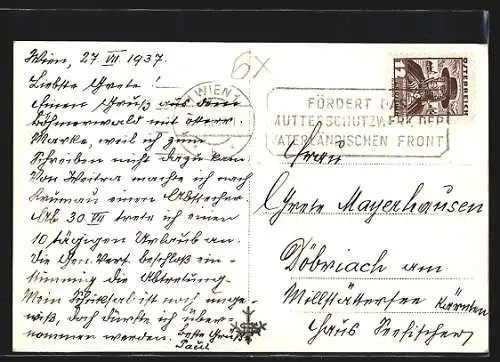 Wien, 27 VII 1937.
Liebste Grete!
Einen Gruß aus dem
Böhmerwald mit österr.
Marke, weil ich zum
Schreiben nicht dazu kam.
Von Weitra machte ich nach
Krumau einen Abstecher
Ab 30 VII trete ich einen
10 tägigen Urlaub an.
Die Gen. Vers. beschloß ein-
stimmig die Abtretung.
Mein Schicksal ist noch unge-
wiß, doch dürfte ich über-
nommen werden. Beste Grüße
Paul
6x
WIEN
FÖRDERT DAS
MUTTERSCHUTZWERK DER
VATERLÄNDISCHEN FRONT
ÖSTERREICH
Frau
Grete Mayerhausen
Döbriach am
Millstättersee Kärnten
Haus Seefischer